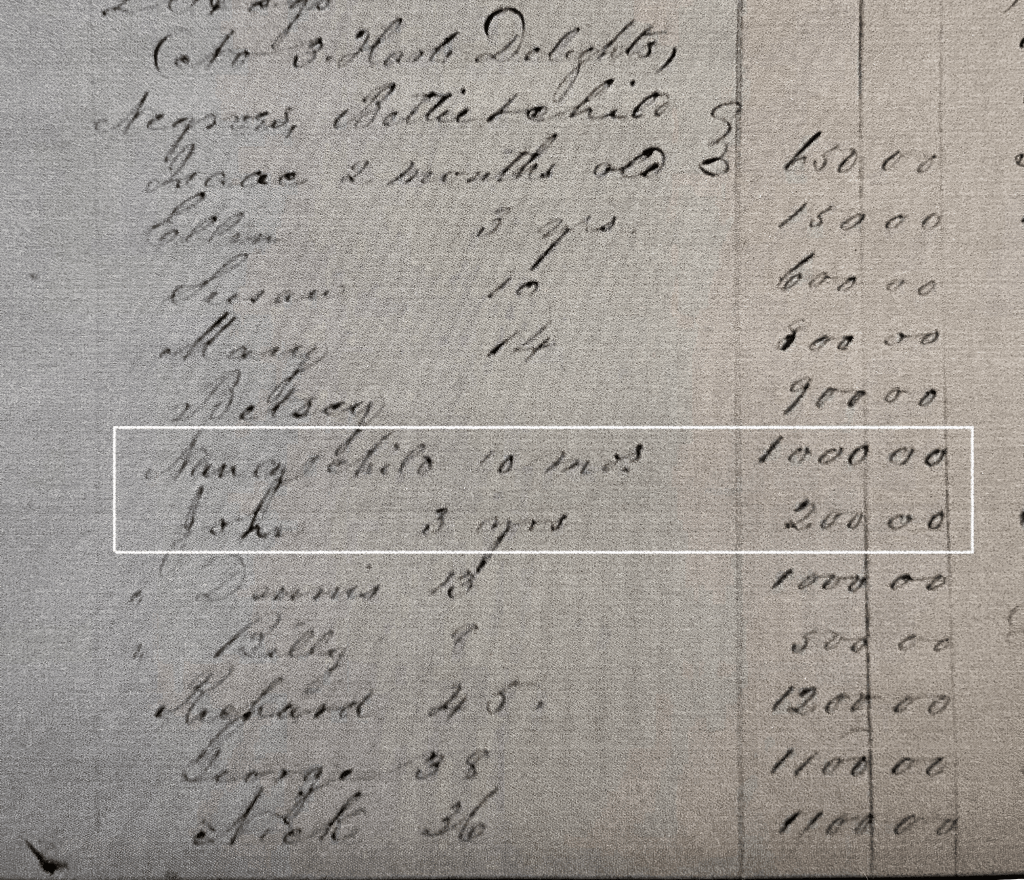 (No 3. Hart Delights,)
Negroes, Bettie & child
Isaac 2 months old } 650 00
Ellen 3 yrs. 150 00
Susan 10 600 00
Mary 14 800 00
Betsey 900 00
Nancy & child 10 mos 1000 00
John 3 yrs 200 00
" Dennis 13 1000 00
" Billy 8 500 00
Richard 45. 1200 00
George 38 1100 00
Nick 36 1100 00